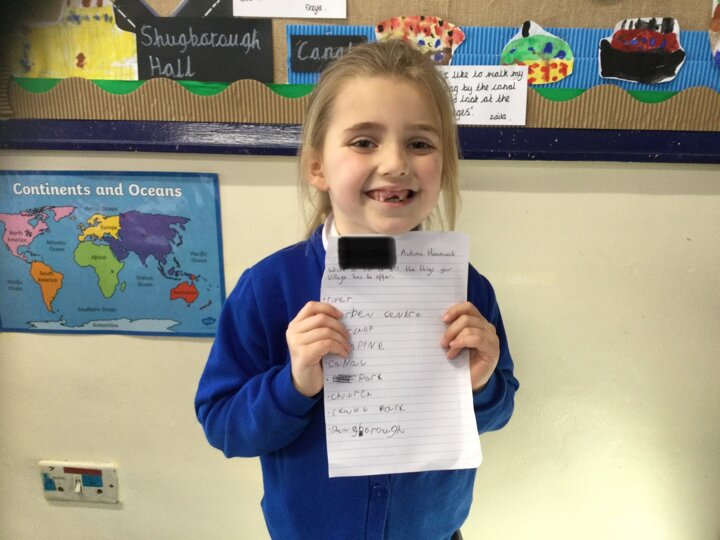 Shugborough
Hall
Canal
I like to walk my
by the canal
and look at the
Continents and Oceans
Arctic Ocean
North
America
Europe
Asia
Atlantic
Ocean
Africa
Pacific
Ocean
Pacific
Ocean
South
America
Indian
Ocean
Southern
Ocean
Antarctica
Autumn Homework
Write a list of all the things your
village has to offer:
• river
centre
SHOP
PINE
• CaNaL
• Park
• church
Park
• Shugborough